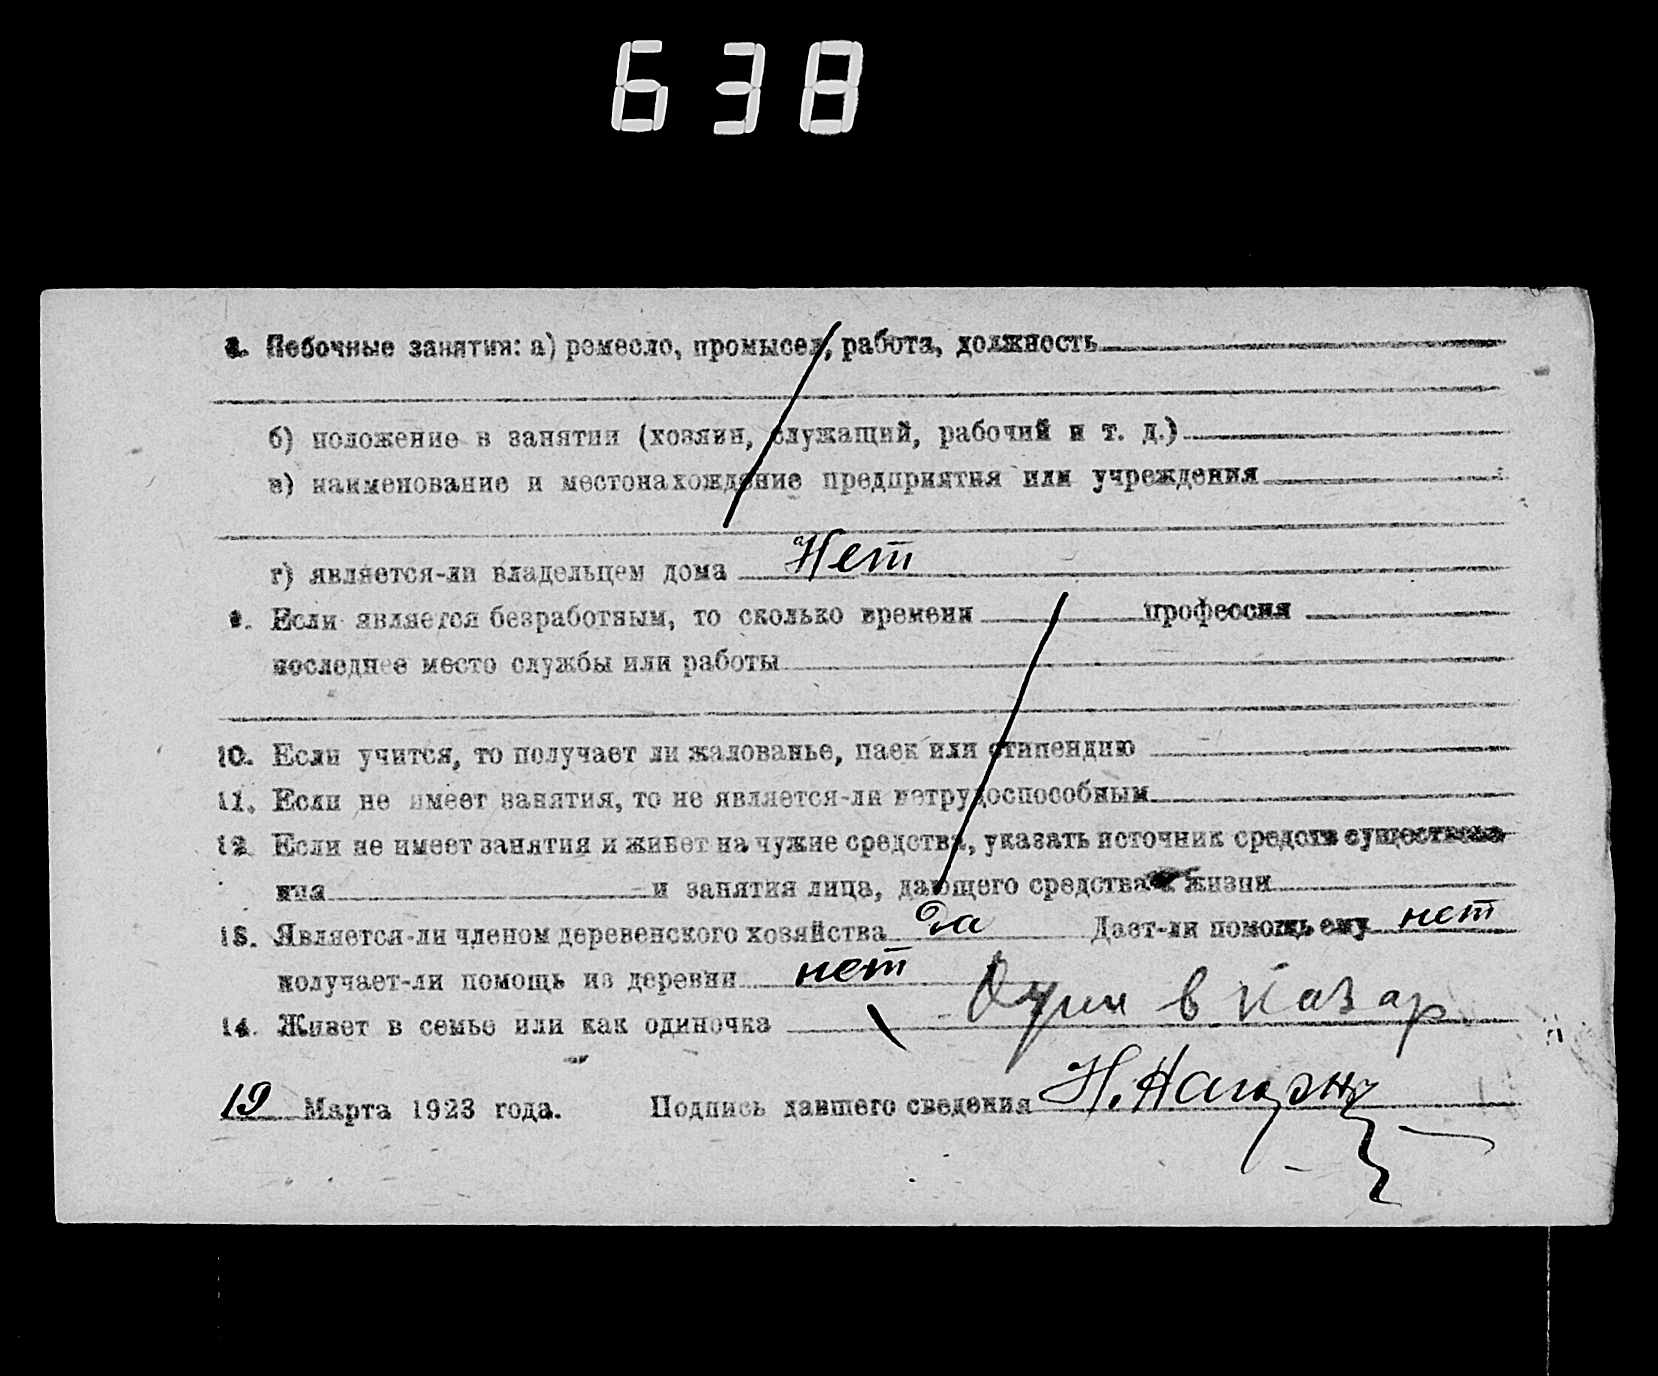 638
8. Побочные занятия: а) ремесло, промысел, работа, должность
б) положение в занятии (хозяин, служащий, рабочий и т. д.)
в) наименование и местонахождение предприятия или учреждения
г) является-ли владельцем дома Нет
9. Если является безработным, то сколько времени профессия
последнее место службы или работы
10. Если учится, то получает ли жалованье, паек или стипендию
11. Если не имеет занятия, то не является-ли нетрудоспособным
12. Если не имеет занятия и живет на чужие средства, указать источник средств существова
ния и занятия лица, дающего средства к жизни
13. Является-ли членом деревенского хозяйства Да Дает-ли помощь ему нет
получает-ли помощь из деревни нет
14. Живет в семье или как одиночка Один в казар.
19 Марта 1923 года. Подпись давшего сведения Н.